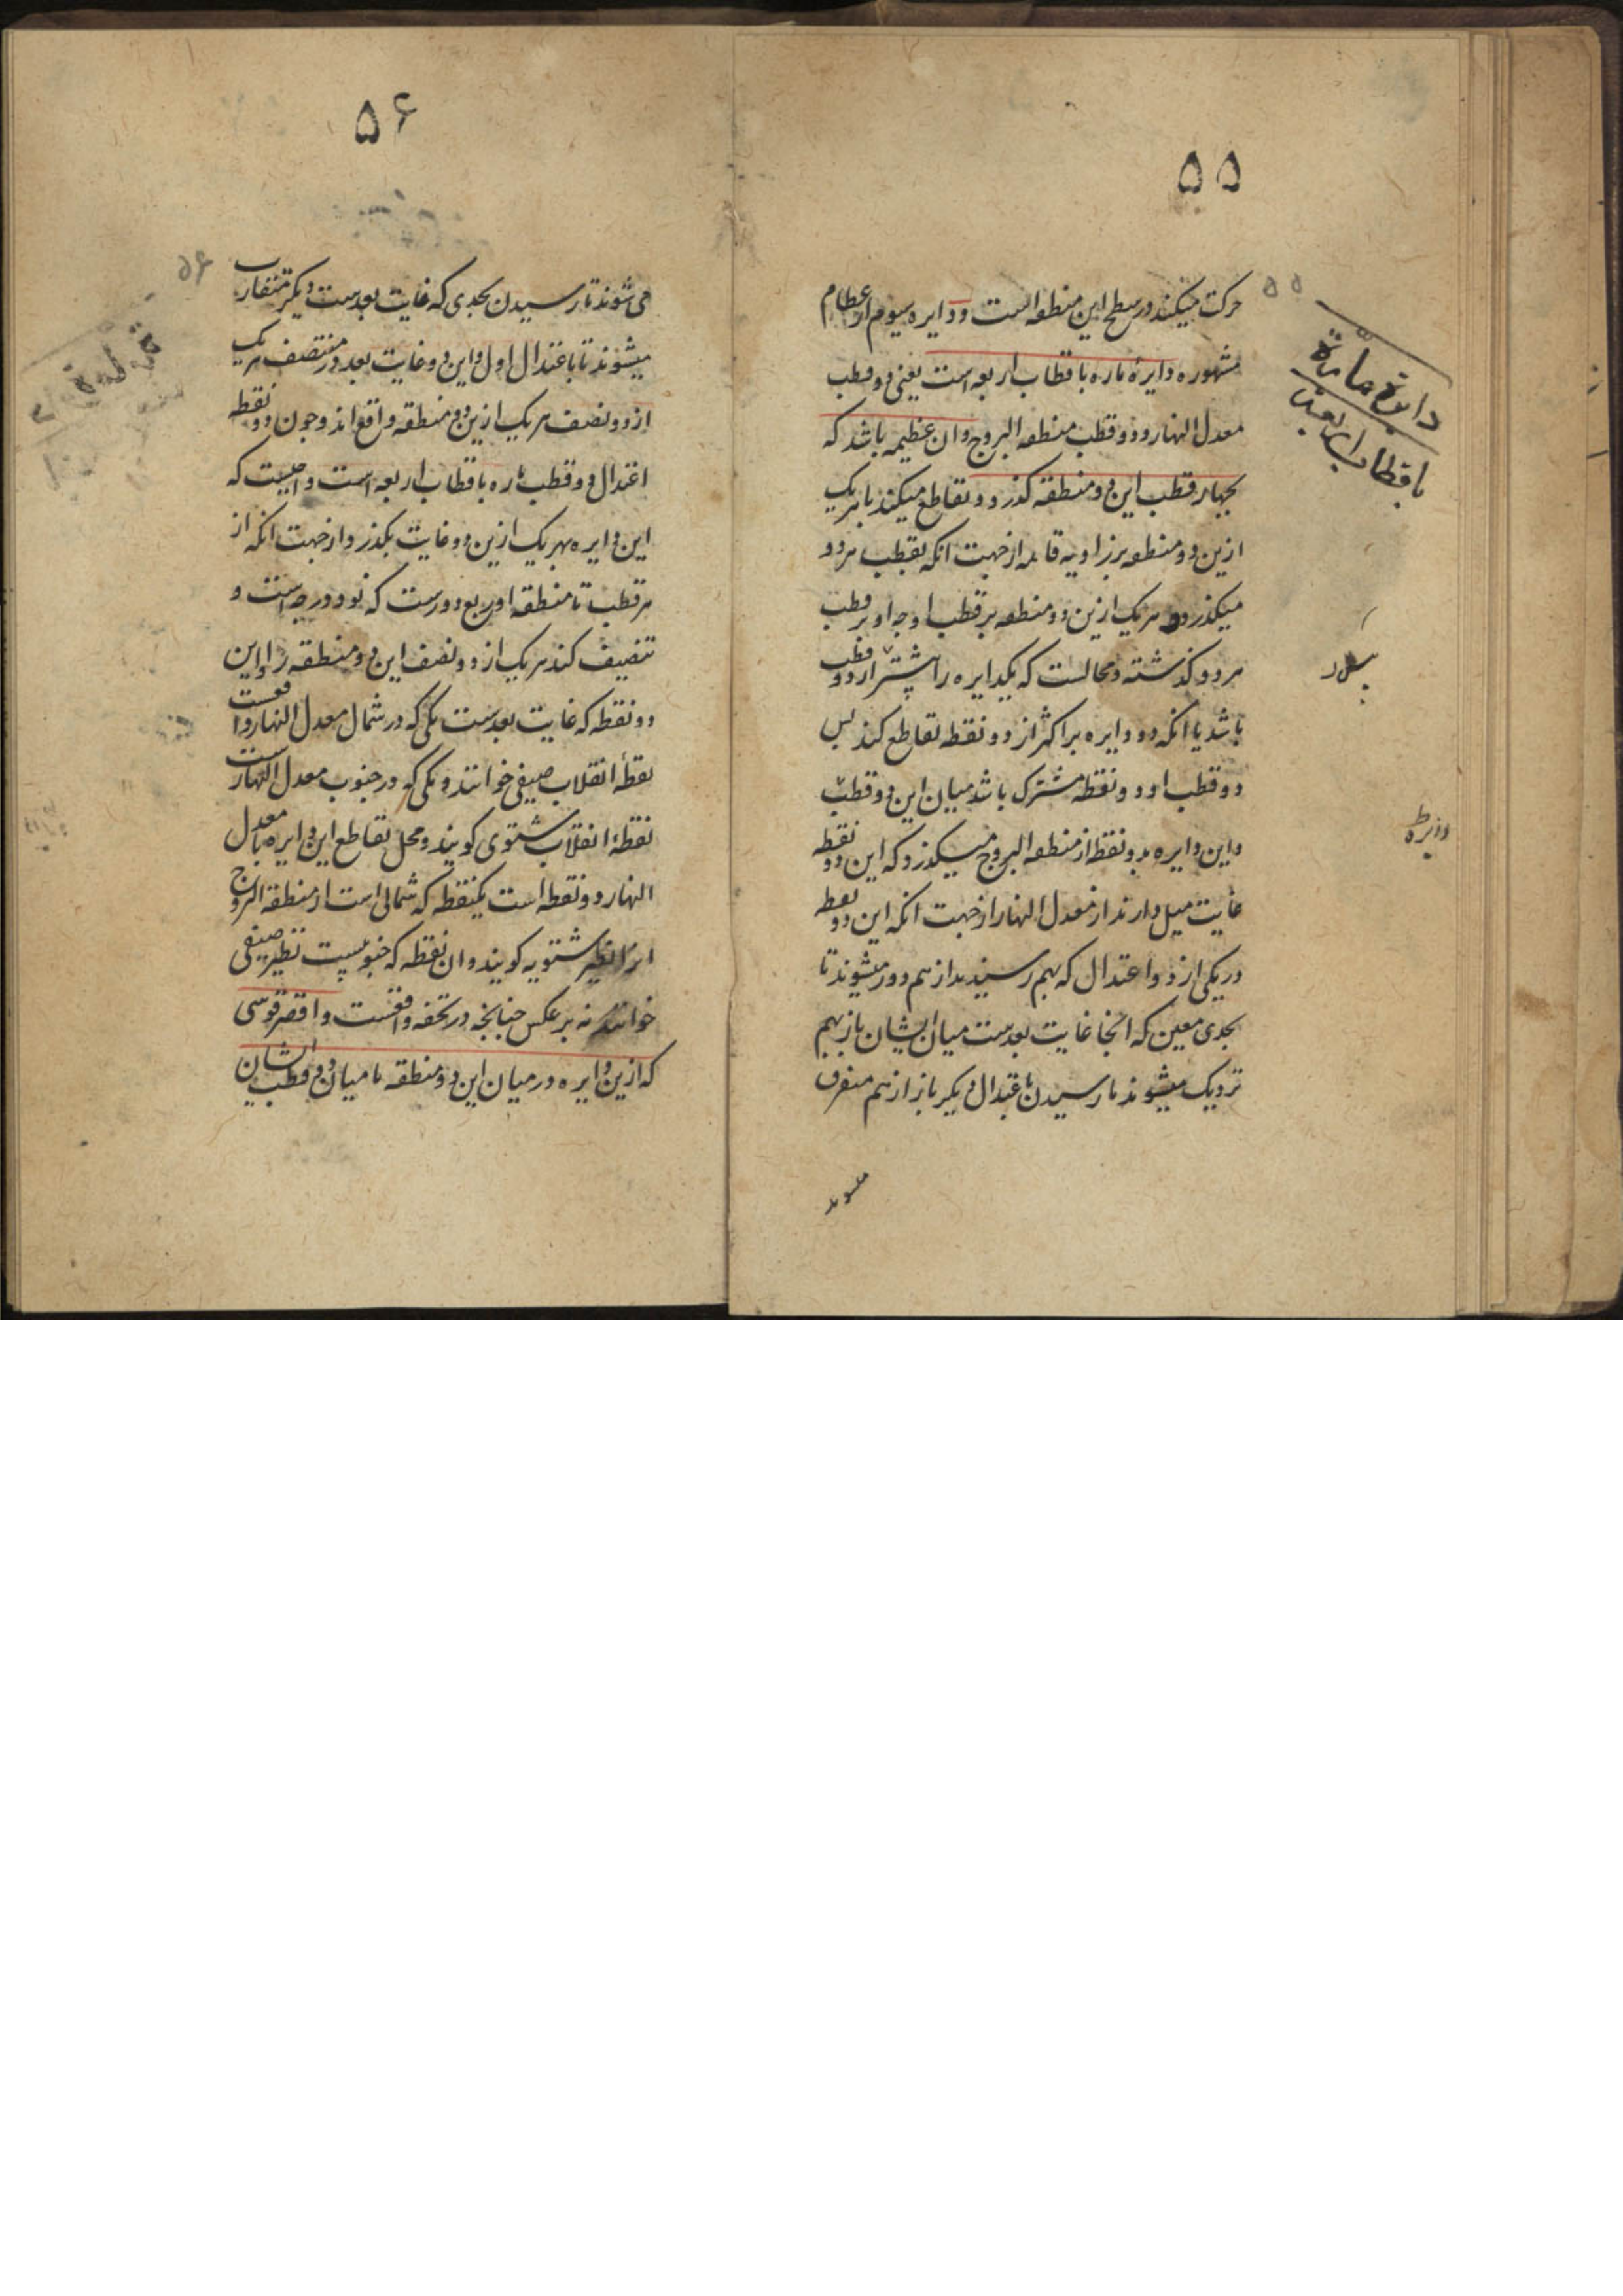 ۵۵
۵۵
حرکت میکنند در سطح این منطقه است و دایره سیوم از عظام
مشهوره دایرهٔ ماره باقطاب اربعه است یعنی دو قطب
معدل النهار و دو قطب منطقه البروج و ان عظیمه باشد که
بچهار قطب این دو منطقه گذرد و تقاطع میکند با هر یک
ازین دو منطقه بر زاویه قائمه از جهت انکه بقطب هر دو
میگذرد و هر یک ازین دو منطقه بر قطب او چه او بر قطب
هر دو گذشته و محالست که یکدایره را بیشتر از دو قطب
باشد یا انکه دو دایره بر اکثر از دو نقطه تقاطع کند پس
دو قطب او دو نقطه مشترک باشد میان این دو قطب
و این دایره بدو نقطه از منطقه البروج میگذرد که این دو نقطه
غایت میل دارند از معدل النهار از جهت انکه این دو نقطه
در یکی از دو اعتدال که بهم رسیدند از هم دور میشوند تا
بحدی معین که انجا غایت بعدست میان ایشان باز بهم
نزدیک میشوند تا رسیدن باعتدال دیگر باز از هم متفرق
میشوند
دایرة مارّة
باقطاب اربعة
دایره
۵۶
۵۶
می شوند تا رسیدن بحدی که غایت بعدست دیگر متقارب
میشوند تا باعتدال اول و این دو غایت بعد در منتصف هر یک
از دو نصف هر یک ازین دو منطقه واقع اند و چون دو نقطه
اعتدال دو قطب ماره باقطاب اربعه است واجبست که
این دایره بهر یک ازین دو غایت بگذرد از جهت انکه از
هر قطب تا منطقه او ربع دورست که نود درجه است و
تنصیف کند هر یک از دو نصف این دو منطقه را و این
دو نقطه که غایت بعدست یکی که در شمال معدل النهار واقعست
نقطهٔ انقلاب صیفی خوانند و یکی که در جنوب معدل النهارست
نقطهٔ انقلاب شتوی کویند و محل تقاطع این دایره با معدل
النهار دو نقطه است یکنقطه که شمالی است از منطقه البروج
انرا نظیر شتویه کویند و ان نقطه که جنوبیست نظیر صیفی
خوانند نه بر عکس چنانچه در تحفه واقعست و اقصر قوسی
که ازین دایره در میان این دو منطقه یا میان دو قطب ایشان